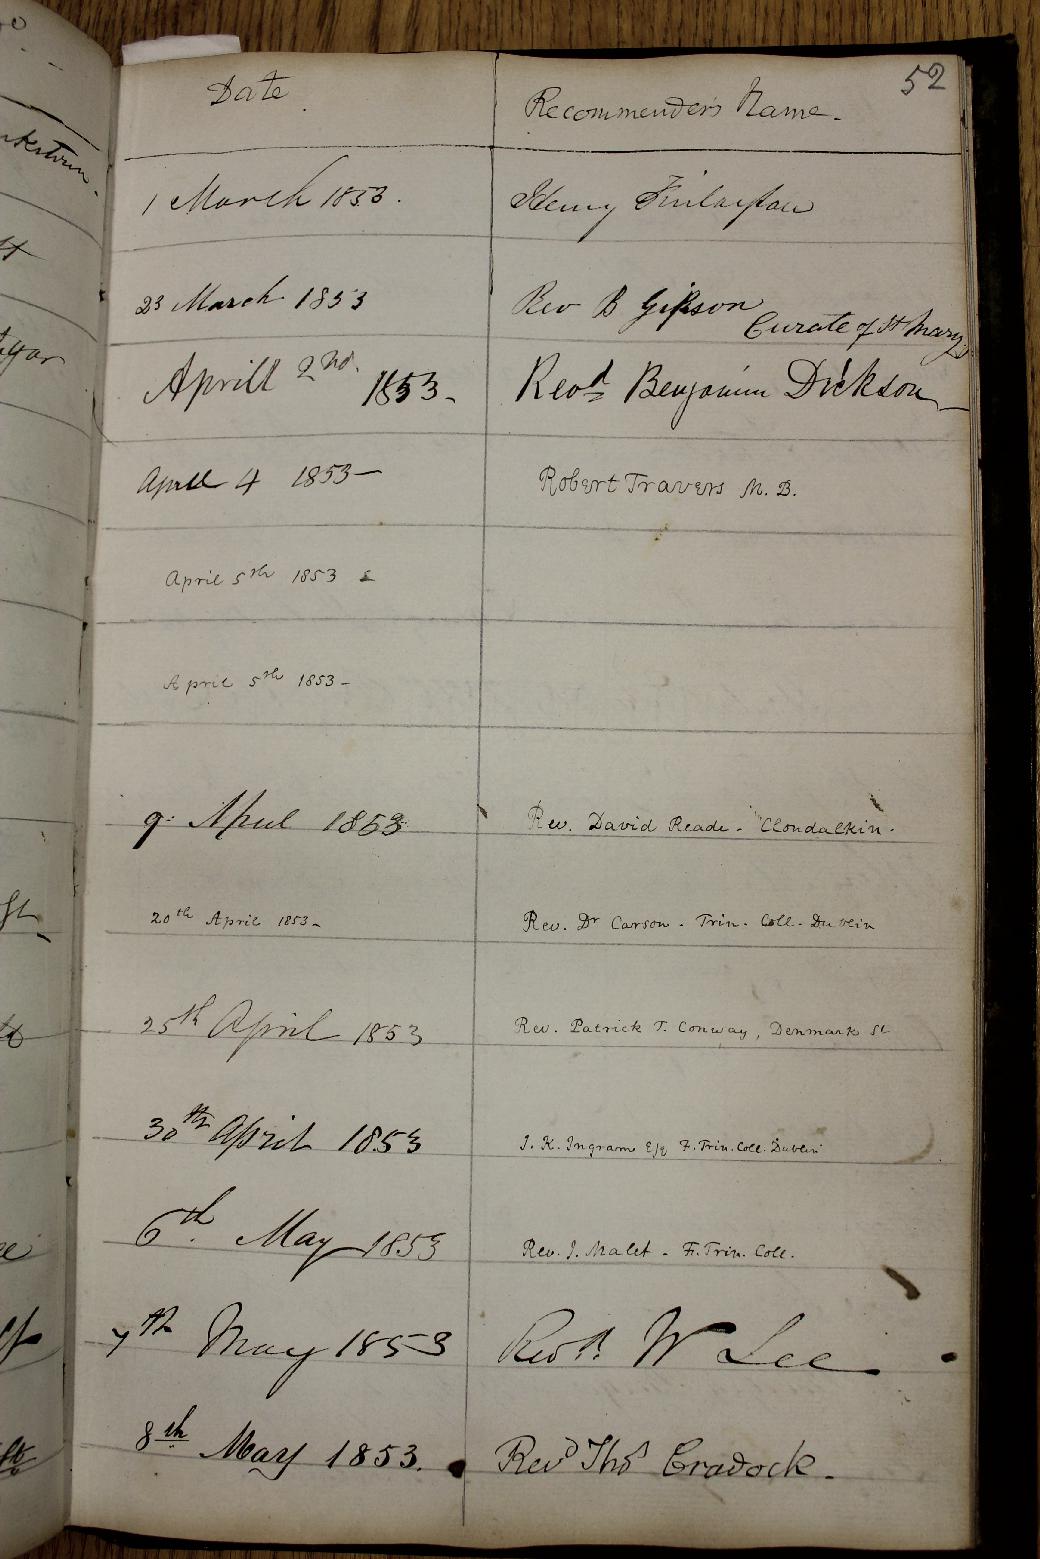 52
Date Recommender's Name.
1 March 1853. Henry
23 March 1853 Rev B Gibson
Curate of St Marys
Aprill 2nd. 1853- Revd Benjamin Dickson
April 4 1853- Robert Travers M. B.
April 5th 1853
April 5th 1853-
9. April 1853 Rev. David Reade. Clondalkin.
20th April 1853- Rev. Dr Carson. Trin. Coll. Dublin
25th April 1853 Rev. Patrick T. Conway, Denmark St
30th April 1853 J. K. Ingram Esq F. Trin. Coll. Dublin
6th. May 1853 Rev. J. Malet - F. Trin. Coll.
7th May 1853 Revd. W Lee
8th May 1853. Revd Thos Cradock.